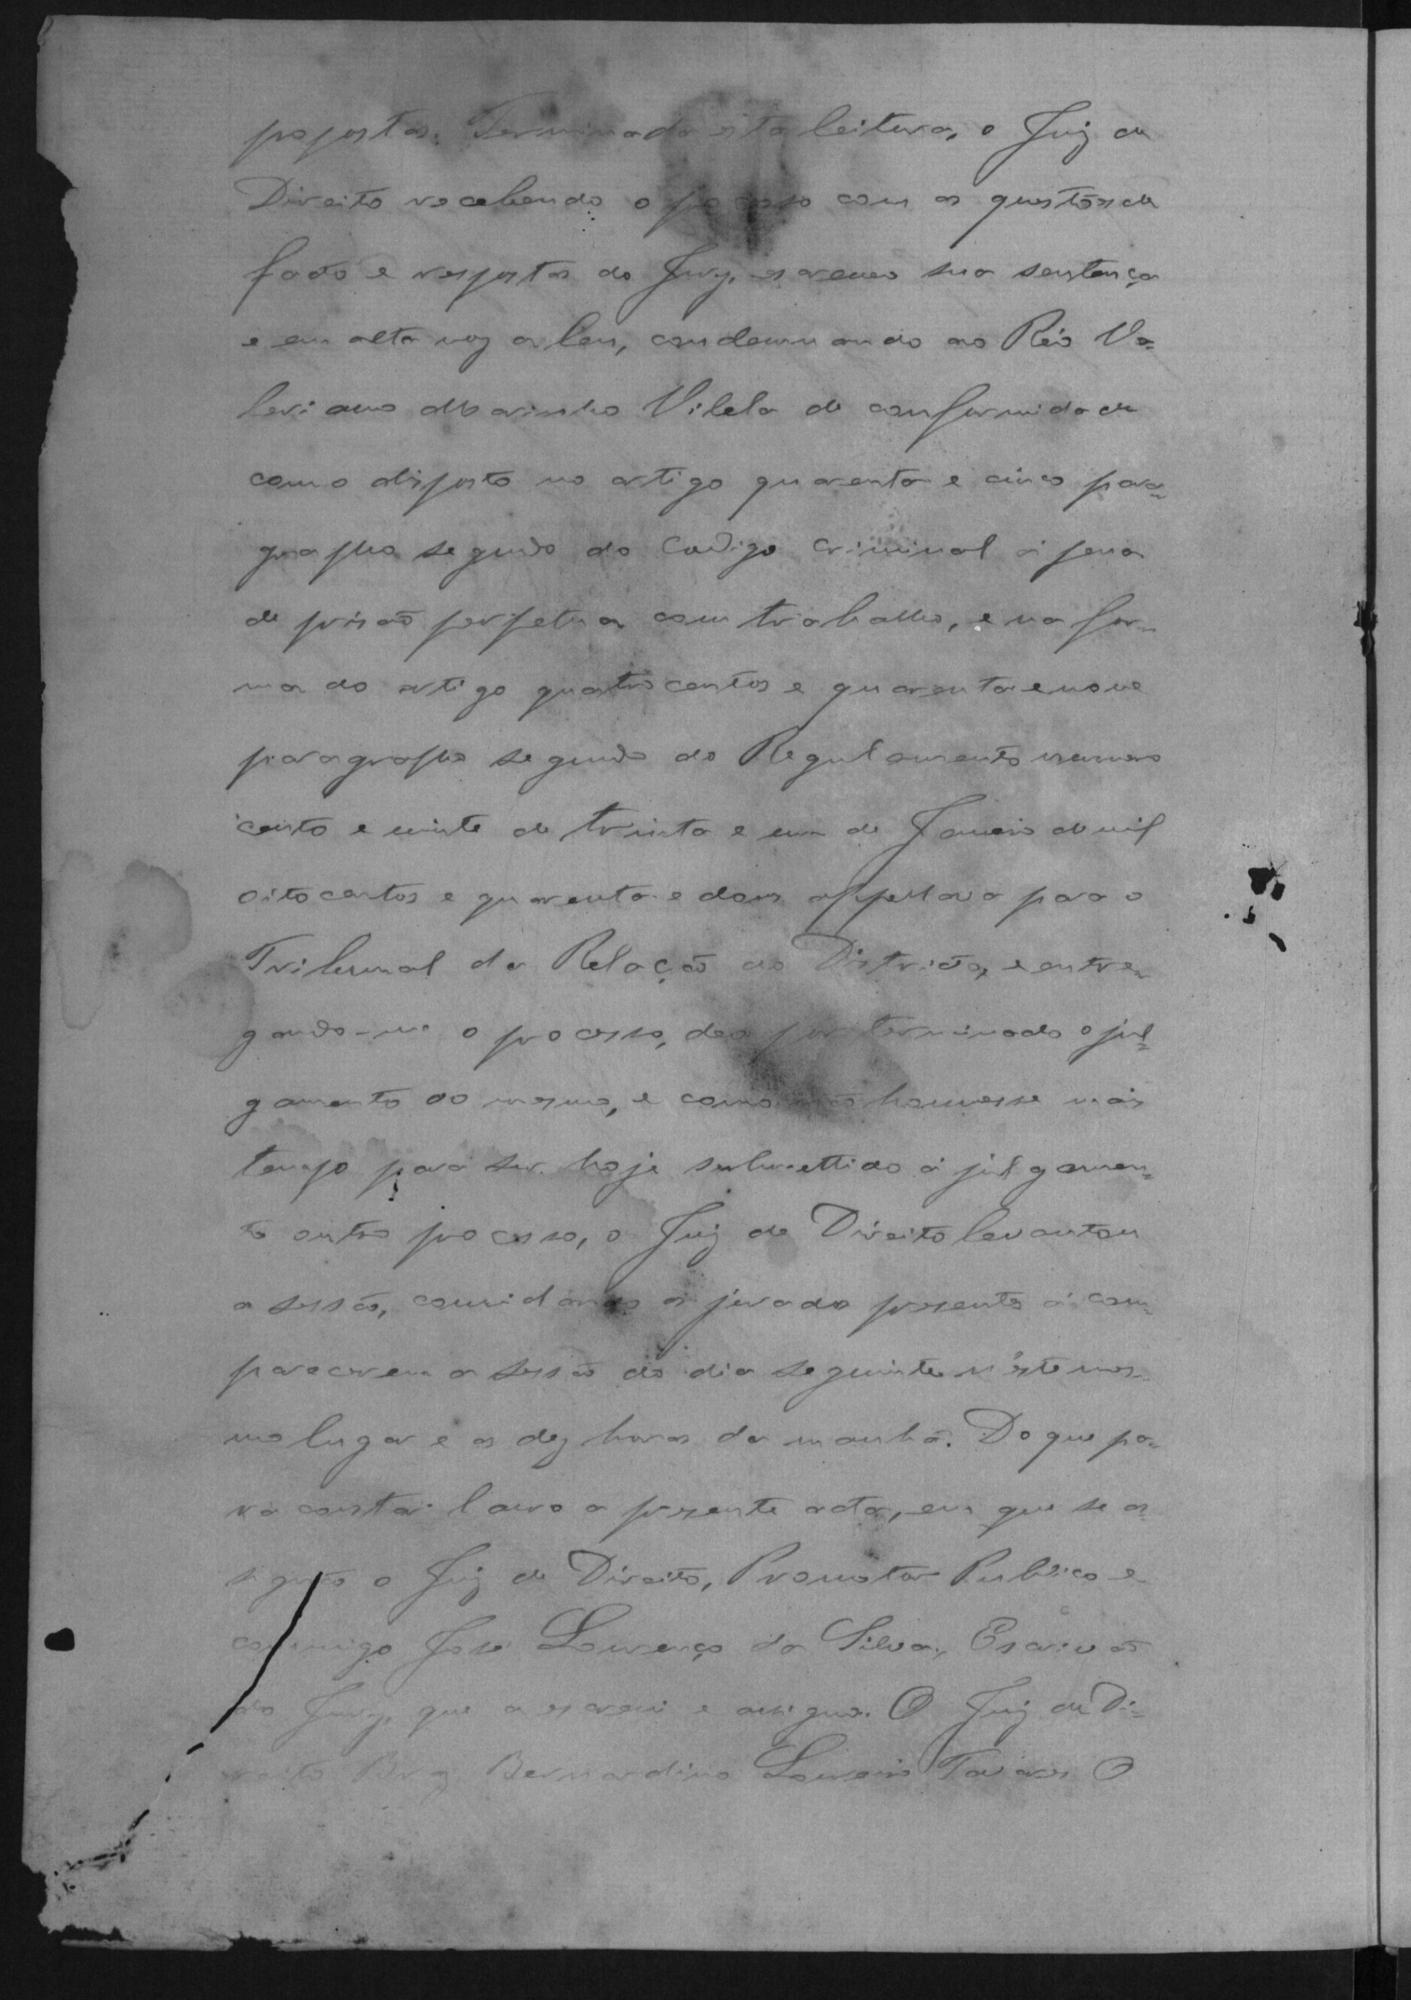 propostas. Terminada esta leitura, o Juiz de
Direito recebendo o processo com as questões de
facto e respostas do Jury, escreveu sua sentença
e em alta voz a leu, condemnando ao Réo Va-
leriano Marinho Vilela de conformidade
com o disposto no artigo quarenta e cinco para-
grapho segundo do Codigo Criminal á pena
de prisão perpetua com trabalho, e na for-
ma do artigo quatrocentos e quarenta e nove
paragrapho segundo do Regulamento numero
cento e vinte de trinta e um de Janeiro de mil
oitocentos e quarenta e dous appellava para o
Tribunal da Relação do Districto, e entre-
gando-me o processo, deo por terminado o jul-
gamento do mesmo, e como não houvesse mais
tempo para ser hoje submettido á julgamen-
to outro processo, o Juiz de Direito levantou
a sessão, convidando os jurados presentes á com-
parecerem a sessão do dia seguinte n'este mes-
mo lugar e as dez horas da manhã. Do que pa-
ra constar lavro a presente acta, em que se as-
signão o Juiz de Direito, Promotor Publico e
commigo José Lourenço da Silva, Escrivão
do Jury, que a escrevi e assigno. O Juiz de Di-
reito Bernardino Loureiro Tavares O